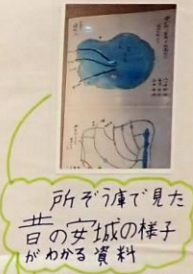 所ぞう庫で見た
昔の安城の様子
がわかる資料